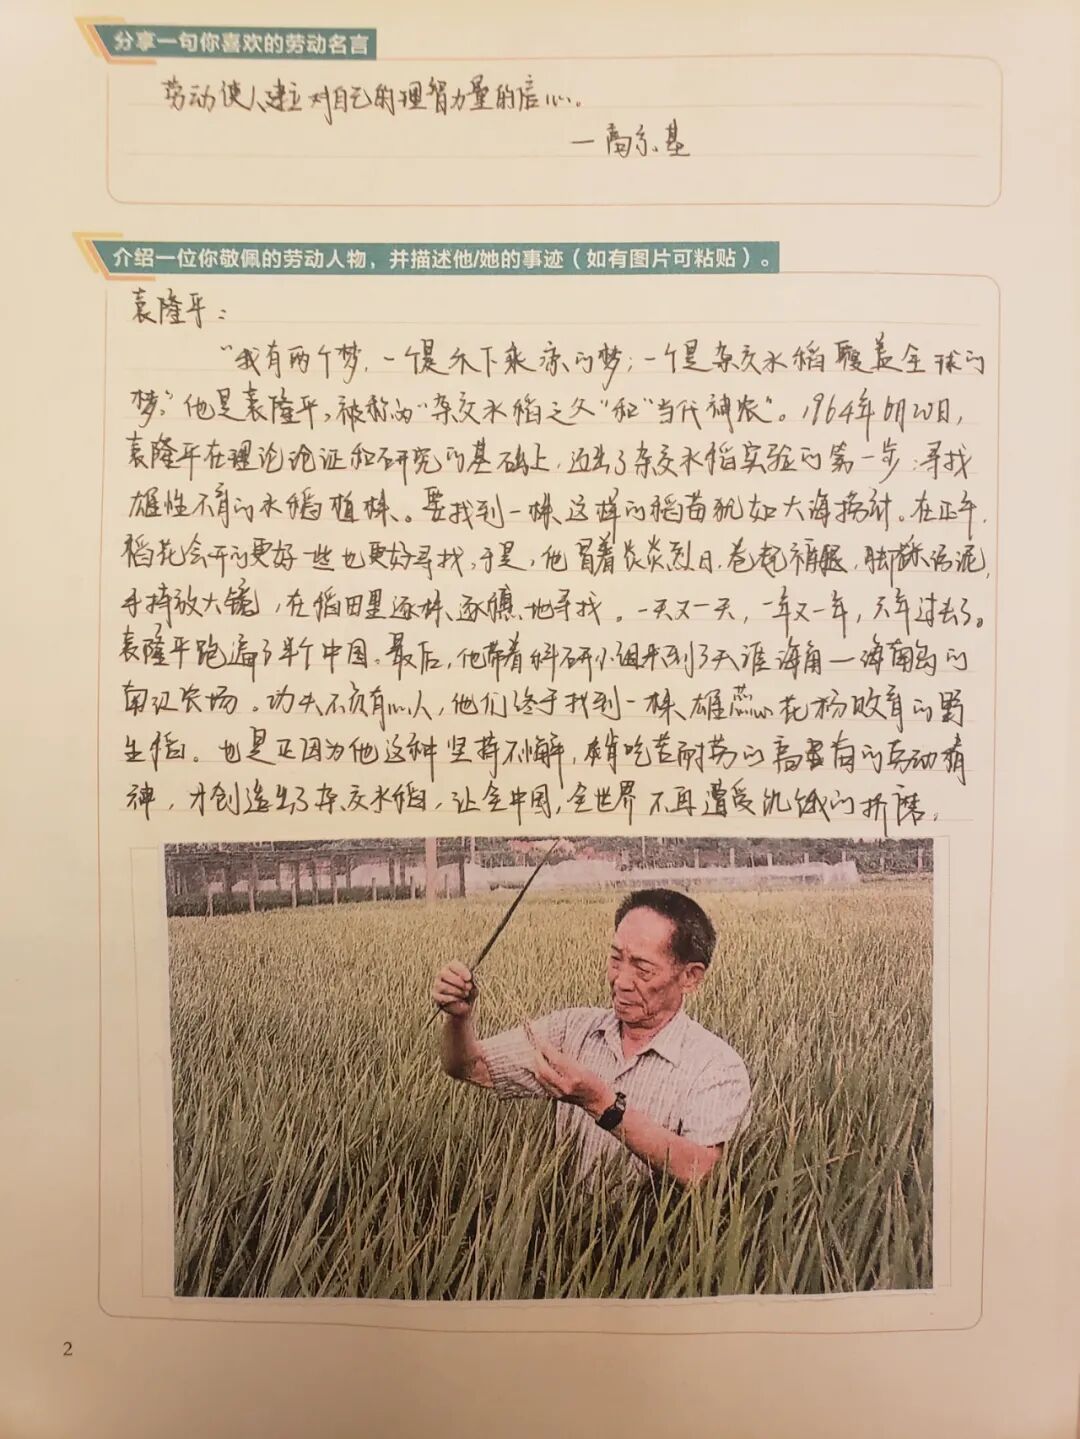 分享一句你喜欢的劳动名言
劳动使人建立对自己的理智力量的信心。
—高尔基
介绍一位你敬佩的劳动人物，并描述他/她的事迹（如有图片可粘贴）。
袁隆平：
“我有两个梦，一个是禾下乘凉的梦；一个是杂交水稻覆盖全球的
梦。”他是袁隆平，被称为“杂交水稻之父”和“当代神农”。1964年6月20日，
袁隆平在理论论证和研究的基础上，迈出了杂交水稻实验的第一步：寻找
雄性不育的水稻植株。要找到一株这样的稻苗犹如大海捞针。在正午，
稻花会开的更好一些也更好寻找，于是，他冒着炎炎烈日，卷起裤腿，脚踩污泥，
手持放大镜，在稻田里逐株、逐穗地寻找。一天又一天，一年又一年，六年过去了。
袁隆平跑遍了半个中国。最后，他带着科研小组来到了天涯海角—海南岛的
南红农场。功夫不负有心人，他们终于找到一株雄蕊花粉败育的野
生稻。也是正因为他这种坚持不懈，肯吃苦耐劳的高尚的劳动精
神，才创造出了杂交水稻，让全中国，全世界不再遭受饥饿的折磨。
2